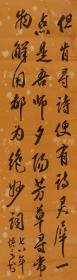 但肯尋詩便有詩灵犀一
点是吾師夕陽芳草尋常
物解用都为絶妙詞